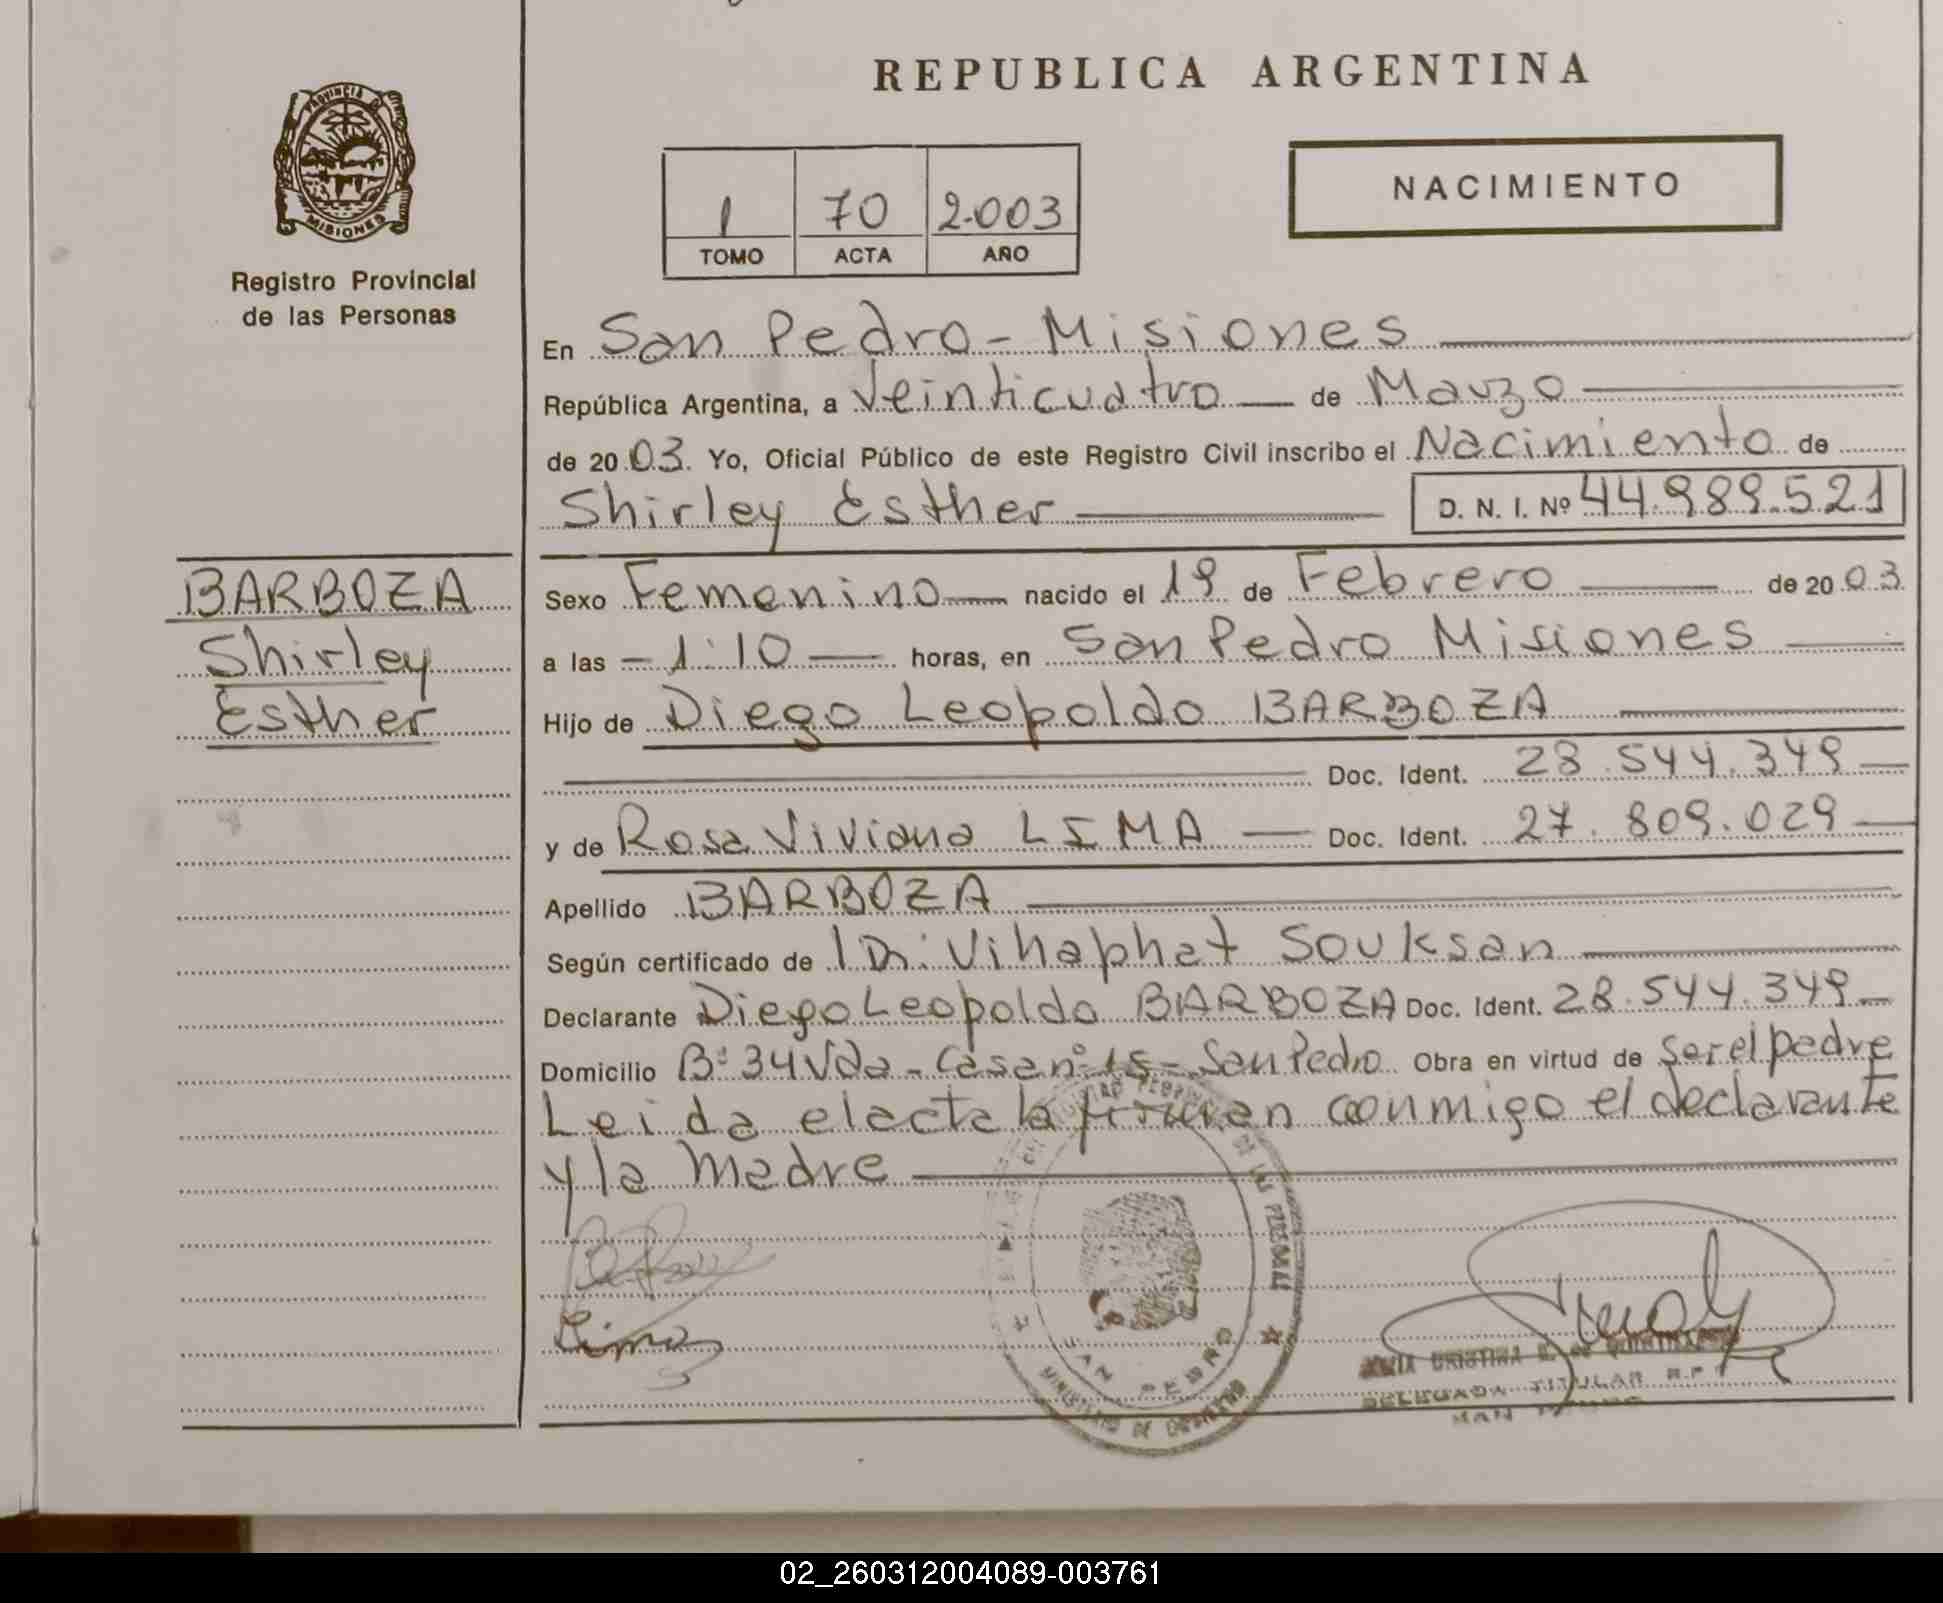 REPUBLICA ARGENTINA
PROVINCIA DE MISIONES
Registro Provincial
de las Personas
1 70 2.003
TOMO ACTA AÑO
NACIMIENTO
En San Pedro - Misiones
República Argentina, a Veinticuatro de Marzo
de 2003. Yo, Oficial Público de este Registro Civil inscribo el Nacimiento de
Shirley Esther D. N. I. Nº 44.989.521
BARBOZA
Shirley
Esther
Sexo Femenino nacido el 19 de Febrero de 2003.
a las - 1:10 horas, en San Pedro Misiones
Hijo de Diego Leopoldo BARBOZA
Doc. Ident. 28.544.349
y de Rosa Viviana LIMA Doc. Ident. 27.809.029
Apellido BARBOZA
Según certificado de Dr. Vihaphat Souksan
Declarante Diego Leopoldo BARBOZA Doc. Ident. 28.544.349
Domicilio Bº 34 Vda - Casa nº 15 - San Pedro Obra en virtud de ser el padre
Leida el acta la firman conmigo el declarante
y la Madre
SAN PEDRO
MINISTERIO DE GOBIERNO
DELEGADA TITULAR R.P.P
02_260312004089-003761